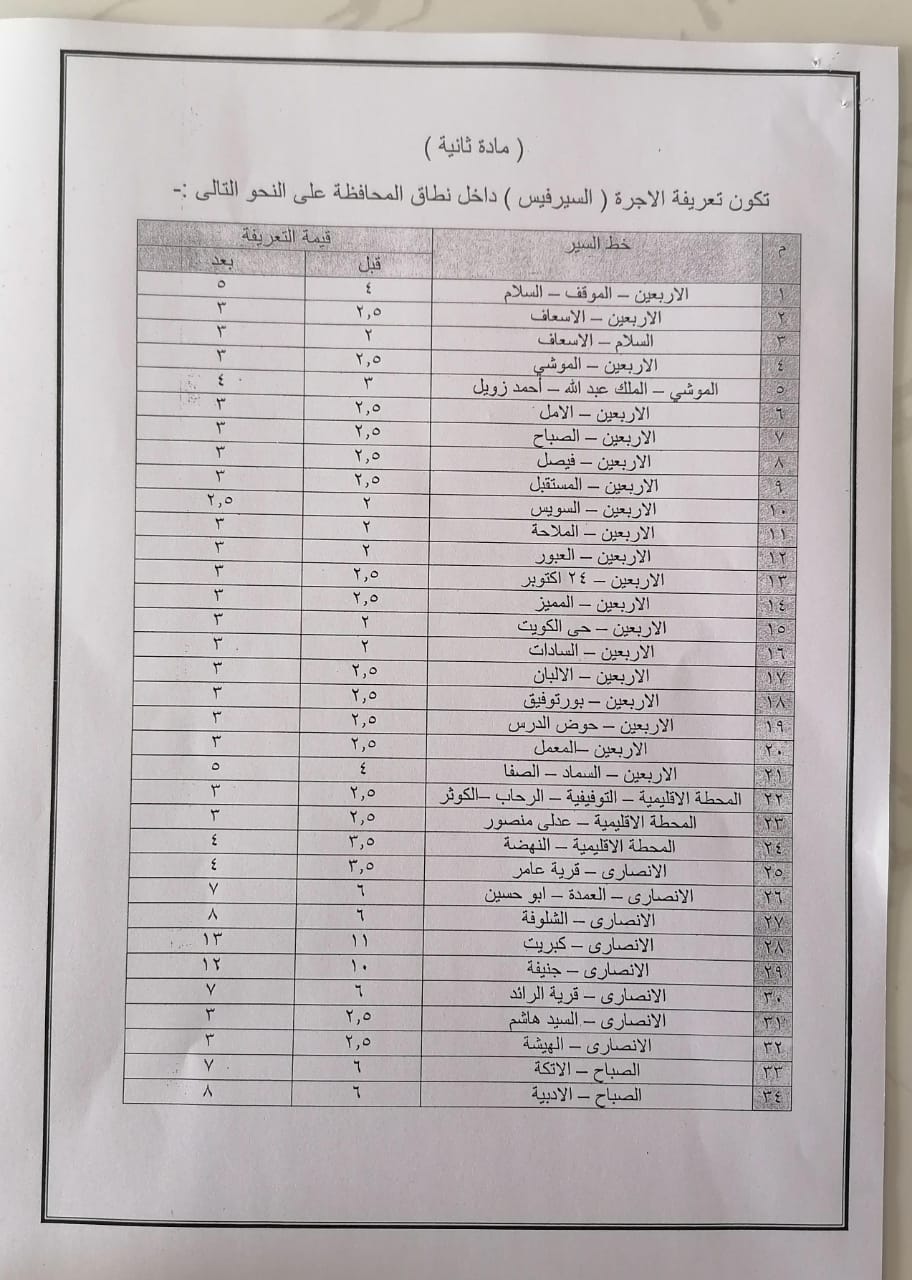 ( مادة ثانية )
تكون تعريفة الاجرة ( السيرفيس ) داخل نطاق المحافظة على النحو التالى :-
م خط السير قيمة التعريفة
قبل بعد
١ الاربعين – الموقف – السلام ٤ ٥
٢ الاربعين – الاسعاف ٢,٥ ٣
٣ السلام – الاسعاف ٢ ٣
٤ الاربعين – الموشي ٢,٥ ٣
٥ الموشي – الملك عبد الله – أحمد زويل ٣ ٤
٦ الاربعين – الامل ٢,٥ ٣
٧ الاربعين – الصباح ٢,٥ ٣
٨ الاربعين – فيصل ٢,٥ ٣
٩ الاربعين – المستقبل ٢,٥ ٣
١٠ الاربعين – السويس ٢ ٢,٥
١١ الاربعين – الملاحة ٢ ٣
١٢ الاربعين – العبور ٢ ٣
١٣ الاربعين – ٢٤ اكتوبر ٢,٥ ٣
١٤ الاربعين – المميز ٢,٥ ٣
١٥ الاربعين – حى الكويت ٢ ٣
١٦ الاربعين – السادات ٢ ٣
١٧ الاربعين – الالبان ٢,٥ ٣
١٨ الاربعين – بورتوفيق ٢,٥ ٣
١٩ الاربعين – حوض الدرس ٢,٥ ٣
٢٠ الاربعين –المعمل ٢,٥ ٣
٢١ الاربعين – السماد – الصفا ٤ ٥
٢٢ المحطة الاقليمية – التوفيفية – الرحاب –الكوثر ٢,٥ ٣
٢٣ المحطة الاقليمية – عدلى منصور ٢,٥ ٣
٢٤ المحطة الاقليمية – النهضة ٣,٥ ٤
٢٥ الانصارى – قرية عامر ٣,٥ ٤
٢٦ الانصارى – العمدة – ابو حسين ٦ ٧
٢٧ الانصارى – الشلوفة ٦ ٨
٢٨ الانصارى – كبريت ١١ ١٣
٢٩ الانصارى – جنيفة ١٠ ١٢
٣٠ الانصارى – قرية الرائد ٦ ٧
٣١ الانصارى – السيد هاشم ٢,٥ ٣
٣٢ الانصارى – الهيشة ٢,٥ ٣
٣٣ الصباح – الاتكة ٦ ٧
٣٤ الصباح – الادبية ٦ ٨